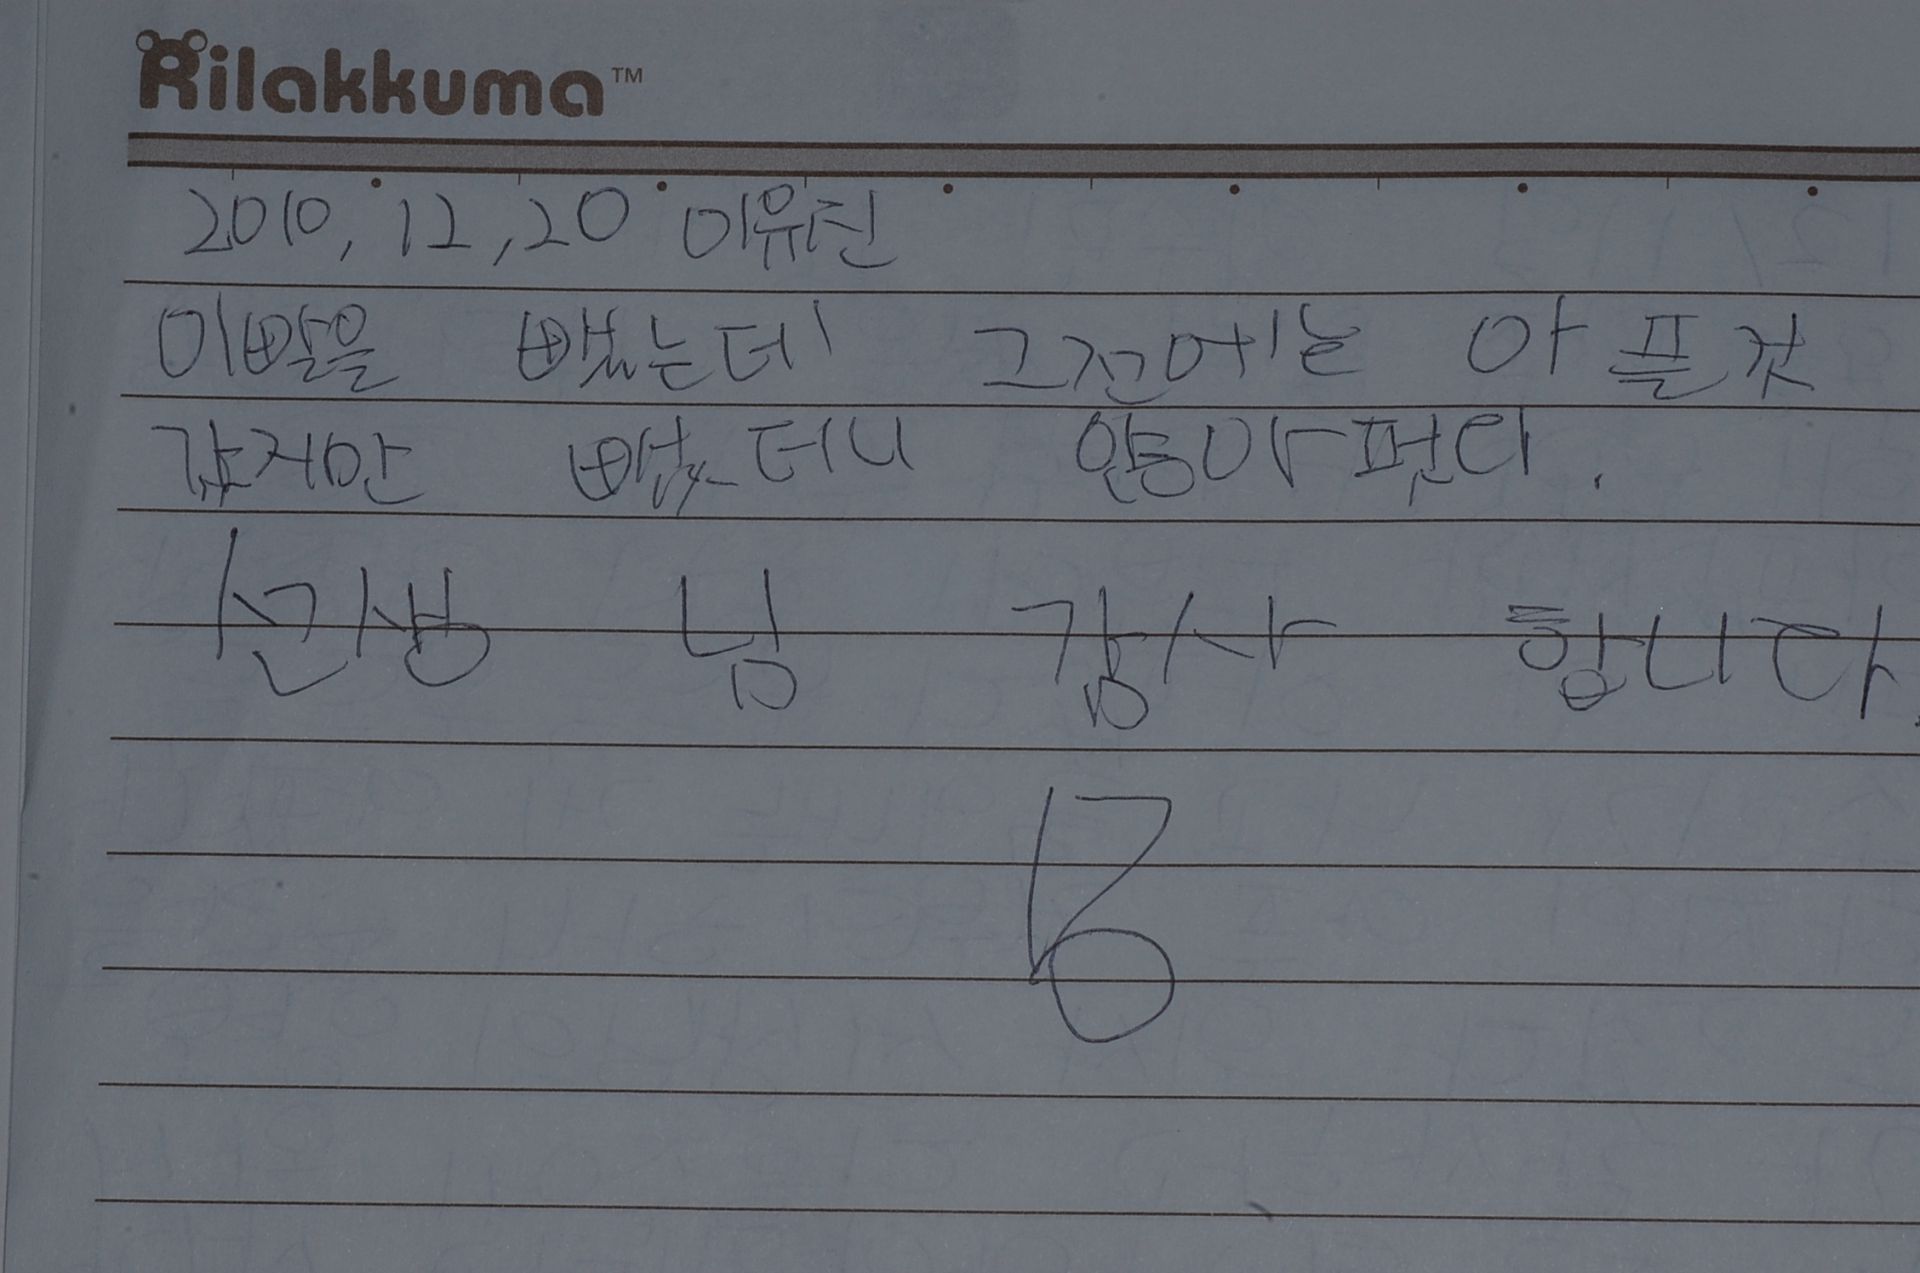 Rilakkuma™
2010, 12, 20 이유진
이빨을 뺐는데 그전에는 아플것
같지만 뺐더니 안아펐다.
선생님 감사 합니다.